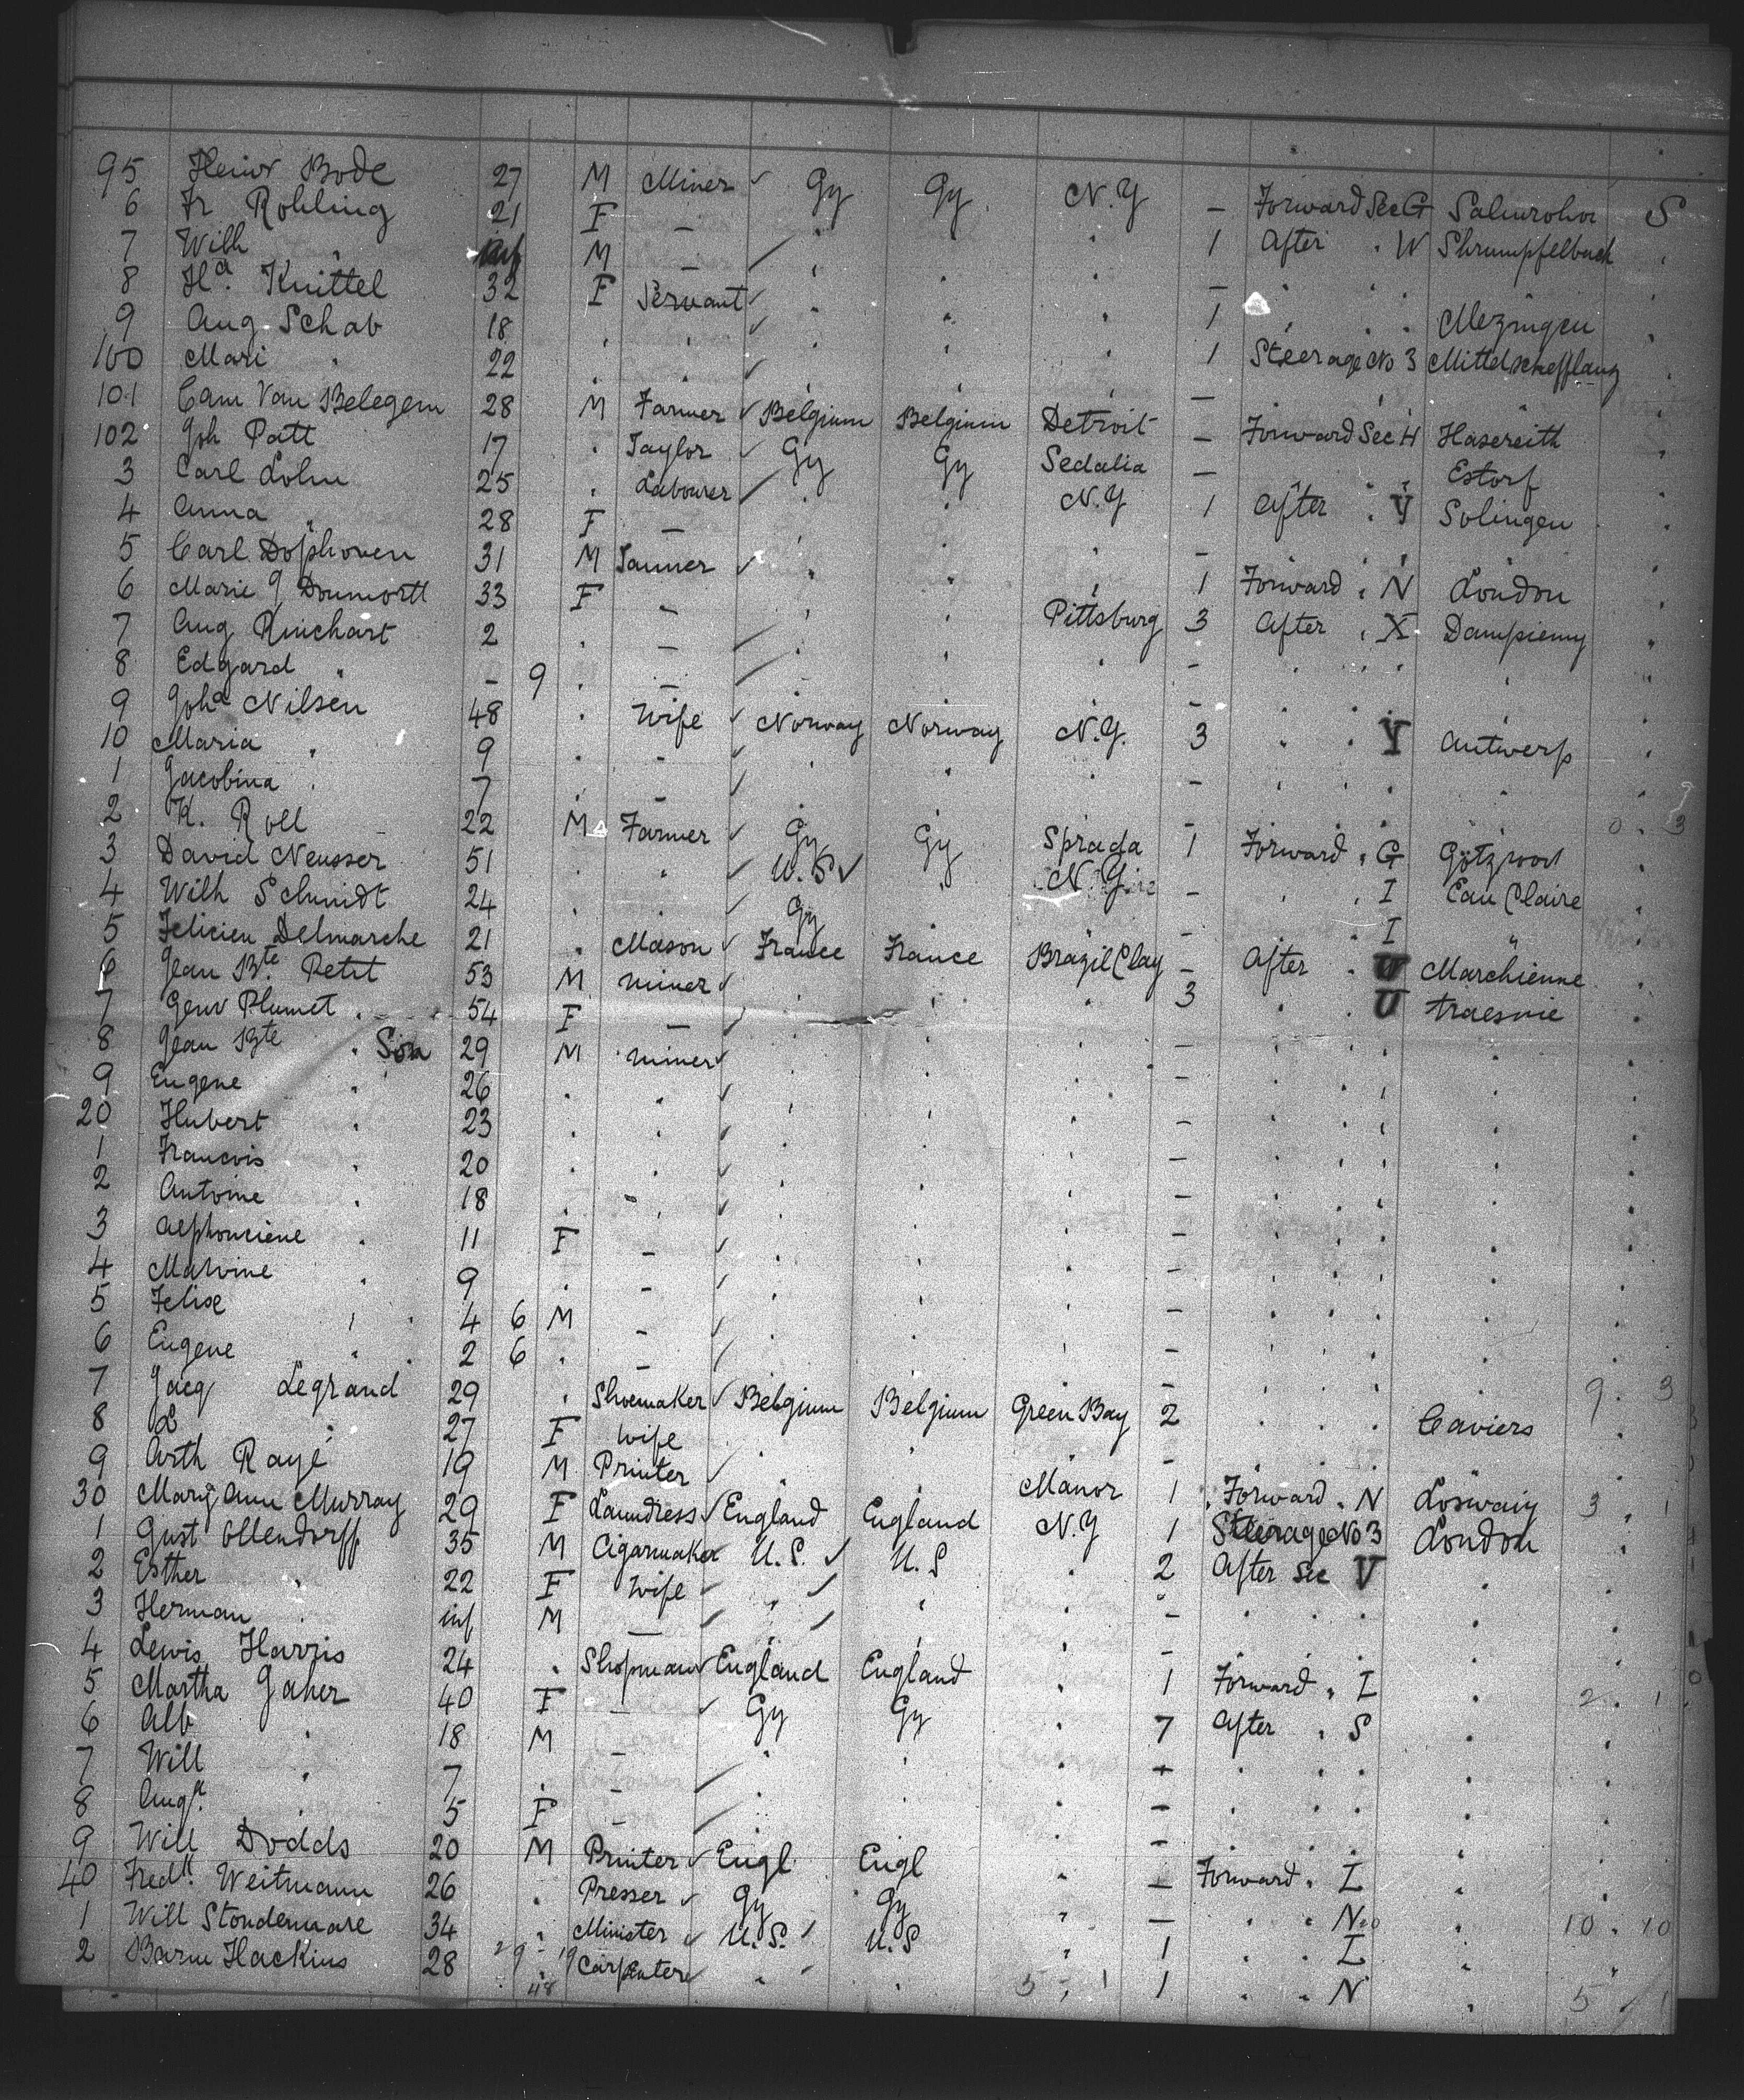 95 Heinr Bode 27 M Miner ✓ Gy Gy N.Y — Forward Sec G S
6 Fr Rohling 21 F — . . . 1 After . W Shrumpfelbach .
7 Wilh " Inf M — . . . — . . .
8 Ha. Knittel 32 F Servant ✓ . . . 1 . . . Mezingen .
9 Aug. Schab 18 . . ✓ . . . 1 Steerage No 3 .
100 Mari . 22 . . ✓ . . . — . . .
101 Cam Van Belegem 28 M Farmer ✓ Belgium Belgium Detroit — Forward Sec H Hasereith .
102 Joh Patt 17 . Taylor ✓ Gy Gy Sedalia — . . Estorf .
3 Carl Lohn 25 . Labourer . . N.Y 1 After . Y Solingen .
4 Anna " 28 F — . . . — . . . .
5 Carl Dophoven 31 M Tanner ✓ . . . 1 Forward . N London .
6 Marie 33 F — . . Pittsburg 3 After . X .
7 Aug Rinchart 2 . — . . . — . . . .
8 Edgard " — 9 . — . . . — . . . .
9 Joha Nilsen 48 . Wife ✓ Norway Norway N.Y. 3 . . Y Antwerp .
10 Maria " 9 . — ✓ . . . — . . . .
1 Jacobina . 7 . — ✓ . . . — . . . .
2 K. Roll 22 M Farmer ✓ Gy Gy 1 Forward . G .
3 David Neusser 51 . . ✓ U.S ✓ . N.Y — . . I Eau Claire .
4 Wilh Schmidt 24 . . ✓ Gy . . — . . I " .
5 Felicien Delmarche 21 . Mason ✓ France France Brazil Clay — After . U Marchienne .
6 Jean Bte. Petit 53 M Miner ✓ . . . 3 . . U .
7 Genv Plumet . 54 F — . . . — . . . .
8 Jean Bte . Son 29 M Miner ✓ . . . — . . . .
9 Eugene . 26 . . ✓ . . . — . . . .
20 Hubert . 23 . . ✓ . . . — . . . .
1 Francois . 20 . . ✓ . . . — . . . .
2 Antoine . 18 . . ✓ . . . — . . . .
3 Alphonciene . 11 F — ✓ . . . — . . . .
4 Malvine . 9 . — . . . — . . . .
5 Felix . 4 6 M — . . . — . . . .
6 Eugene . 2 6 . — . . . — . . . .
7 Jacq Legrand 29 . Shoemaker ✓ Belgium Belgium Green Bay 2 . . . Caviers 9 . 3
8 L . 27 F Wife . . . — . . .
9 Arth Rayé 19 M Printer . . Manor 1 Forward . N 3 . 1
30 Mary Ann Murray 29 F Laundress ✓ England England N.Y 1 Steerage No 3 London .
1 Gust Ollendorff 35 M Cigarmaker U.S. ✓ U.S . 2 After Sec V .
2 Esther . 22 F Wife ✓ . . . — . . . .
3 Herman . inf M — . . . — . . . .
4 Lewis Harris 24 . Shopman ✓ England England . 1 Forward . I .
5 Martha Gaher 40 F — ✓ Gy Gy . 7 After . S . 2 . 1
6 Alb . 18 M — . . . — . . . .
7 Will . 7 . — . . . — . . . .
8 Auga. . 5 F — . . . — . . . .
9 Will Dodds 20 M Printer ✓ Engl. Engl . — Forward . I .
40 Fredk. Weitmann 26 . Presser ✓ Gy Gy . — . . N .
1 Will Stondemare 34 . Minister ✓ U.S. U.S . 1 . . I . 10 . 10
2 Hackins 28 . Carpenter ✓ . . . 1 . . N . 5 / 1